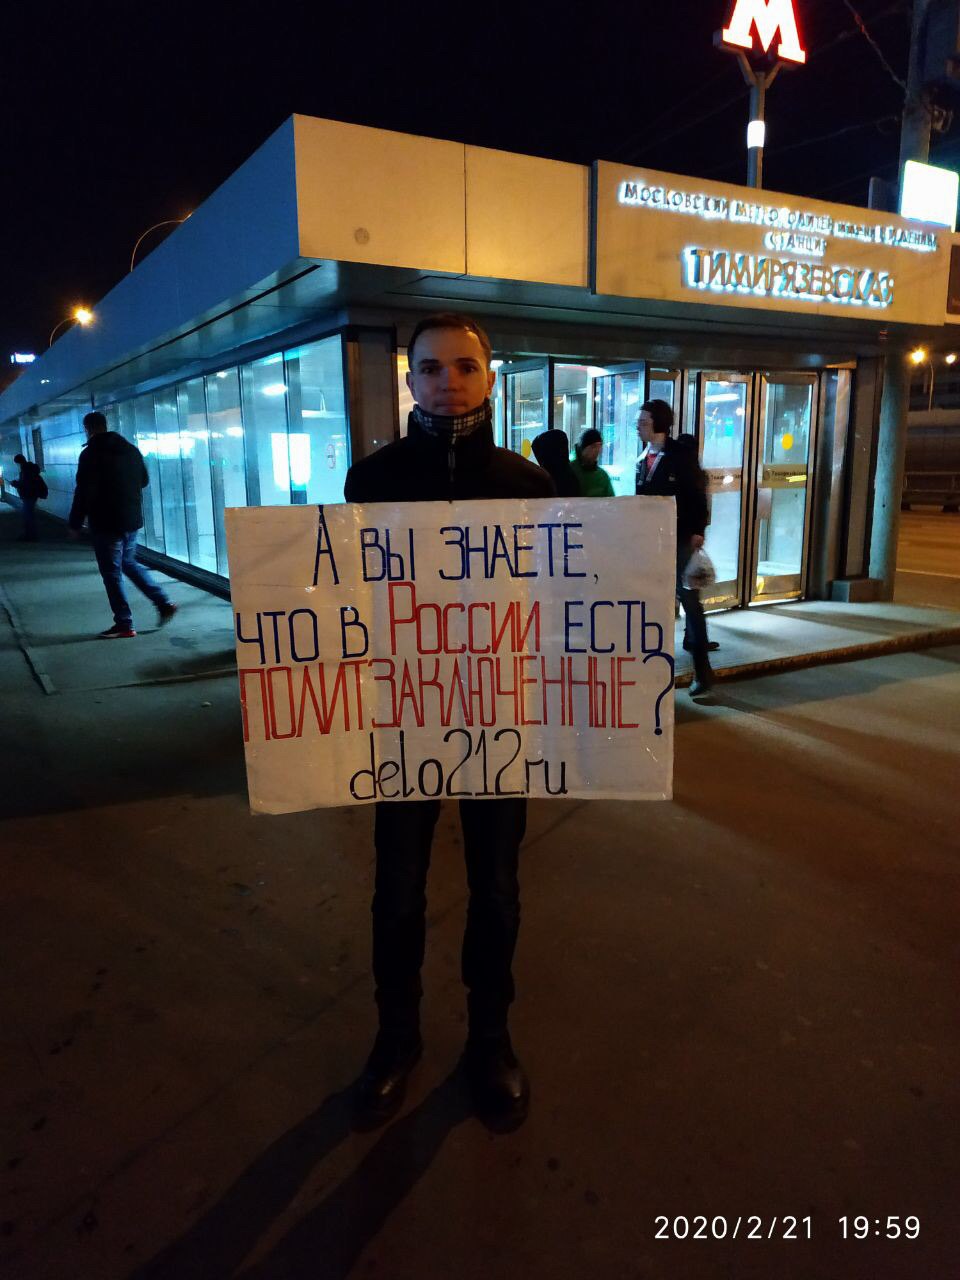 М
МОСКОВСКИЙ МЕТРОПОЛИТЕН имени В.И.ЛЕНИНА
СТАНЦИЯ
ТИМИРЯЗЕВСКАЯ
А ВЫ ЗНАЕТЕ,
ЧТО В РОССИИ ЕСТЬ
ПОЛИТЗАКЛЮЧЕННЫЕ?
delo212.ru
2020/2/21 19:59